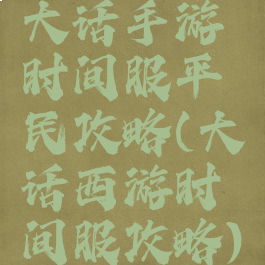 大话手游
时间服平
民攻略(大
话西游时
间服攻略)